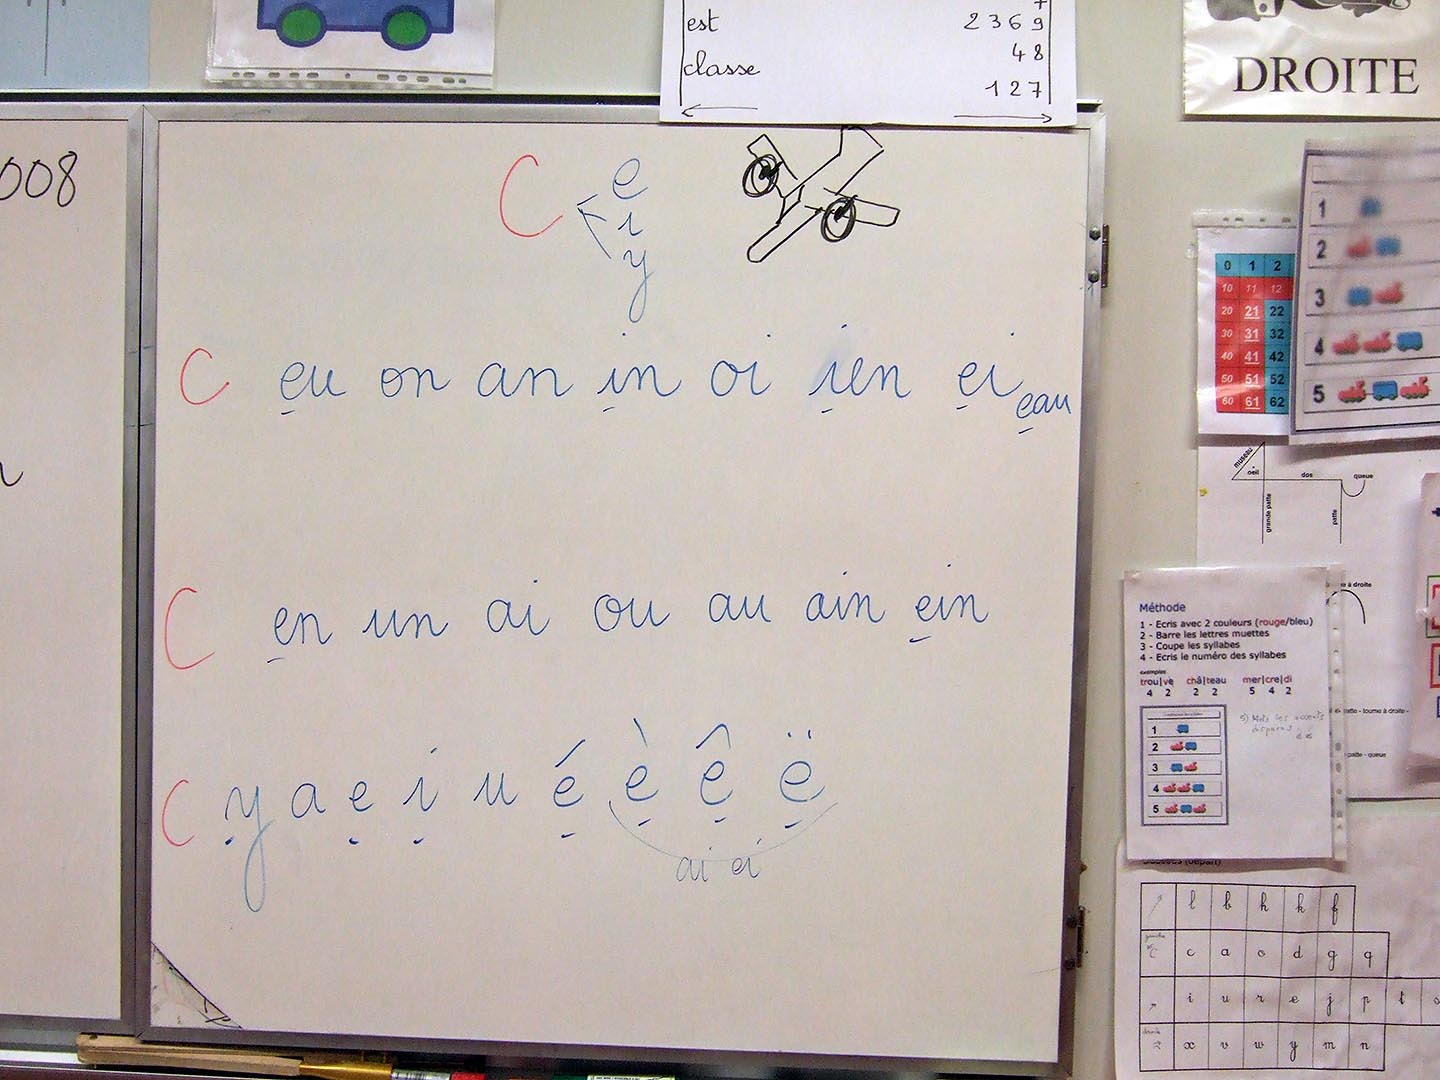 est 2 3 6 9
4 8
classe
1 2 7
DROITE
008
C e
i
y
C eu on an in oi ien ei
eau
C en un ai ou au ain ein
C y a e i u é è ê ë
ai ei
0 1 2
10 11 12
20 21 22
30 31 32
40 41 42
50 51 52
60 61 62
1
2
3
4
5
museau
oeil dos queue
grande patte
patte
Méthode
1 - Ecris avec 2 couleurs (rouge/bleu)
2 - Barre les lettres muettes
3 - Coupe les syllabes
4 - Ecris le numéro des syllabes
exemples
trou|ve châ|teau mer|cre|di
4 2 2 2 5 4 2
5) Mets les accents
disparus
1
2
3
4
5
à droite
patte - tourne à droite -
patte - queue
l b h k f
c a o d g q
i u r e j p t s
x v w y m n